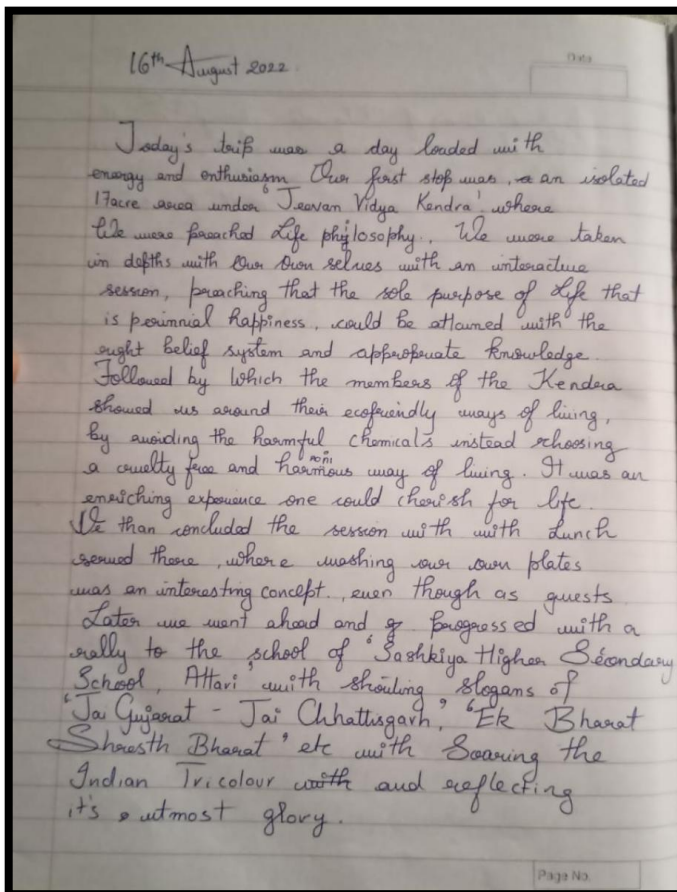 16th August 2022
Date
Today's trip was a day loaded with
energy and enthusiasm Our first stop was, an isolated
17acre area under 'Jeevan Vidya Kendra' where
We were preached Life philosophy. We were taken
in depths with Our Own selves with an interactive
session, preaching that the sole purpose of Life that
is perinnial happiness, could be attained with the
right belief system and appropriate knowledge.
Followed by which the members of the Kendra
showed us around their ecofriendly ways of living,
by avoiding the harmful chemicals instead choosing
a cruelty free and harmonious way of living. It was an
enriching experience one could cherish for life.
We than concluded the session with with Lunch
served there, where washing our own plates
was an interesting concept, even though as guests
Later we went ahead and progressed with a
rally to the school of 'Sashkiya Higher Secondary
School, Attari' with shouting slogans of
'Jai Gujarat - Jai Chhattisgarh,' 'Ek Bharat
Shresth Bharat' etc with Soaring the
Indian Tricolour with and reflecting
it's utmost glory.
Page No.